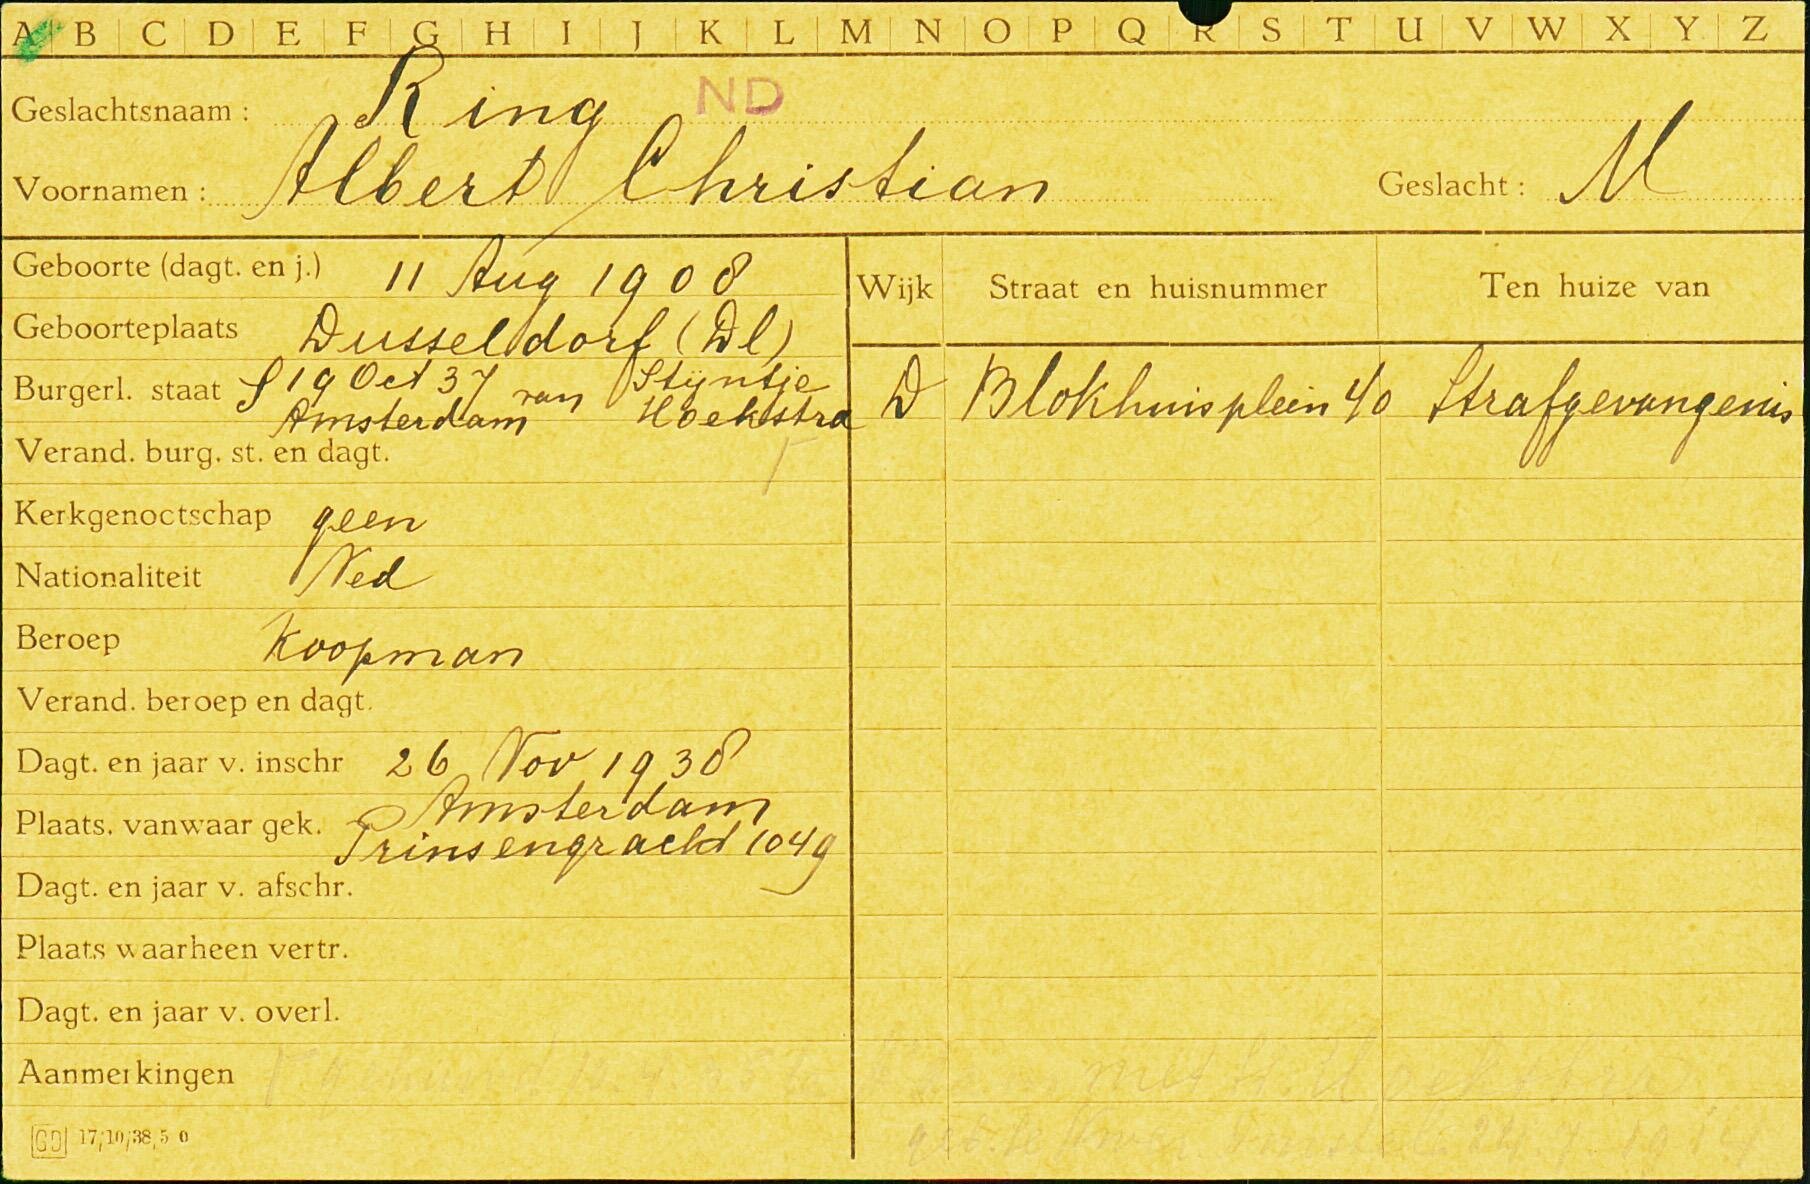 A B C D E F G H I J K L M N O P Q R S T U V W X Y Z
Geslachtsnaam : Ring ND
Voornamen : Albert Christian Geslacht : M
Geboorte (dagt. en j.) 11 Aug 1908
Geboorteplaats Dusseldorf (Dl)
Burgerl. staat S 19 Oct 37 van Stijntje
Amsterdam Hoekstra
Verand. burg. st. en dagt.
Kerkgenootschap geen
Nationaliteit Ned
Beroep Koopman
Verand. beroep en dagt.
Dagt. en jaar v. inschr 26 Nov 1938
Plaats. vanwaar gek. Amsterdam
Prinsengracht 1049
Dagt. en jaar v. afschr.
Plaats waarheen vertr.
Dagt. en jaar v. overl.
Aanmerkingen
GD 17/10/38, 5 0
Wijk Straat en huisnummer Ten huize van
D Blokhuisplein 40 Strafgevangenis
met Hoekstra